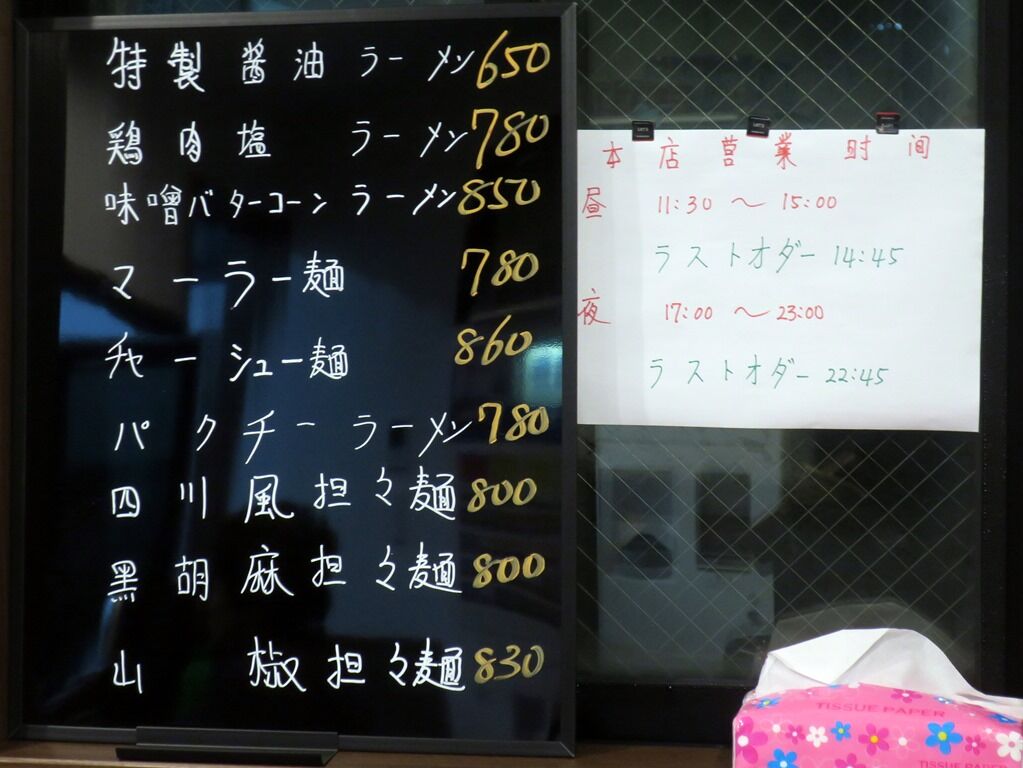 特製醤油ラーメン 650
鶏肉塩 ラーメン 780
味噌バターコーンラーメン 850
マーラー麺 780
チャーシュー麺 860
パクチーラーメン 780
四川風担々麺 800
黒胡麻担々麺 800
山椒担々麺 830
本店営業时间
昼 11:30 〜 15:00
ラストオダー 14:45
夜 17:00 〜 23:00
ラストオダー 22:45
TISSUE PAPER
TISSUE PAPER